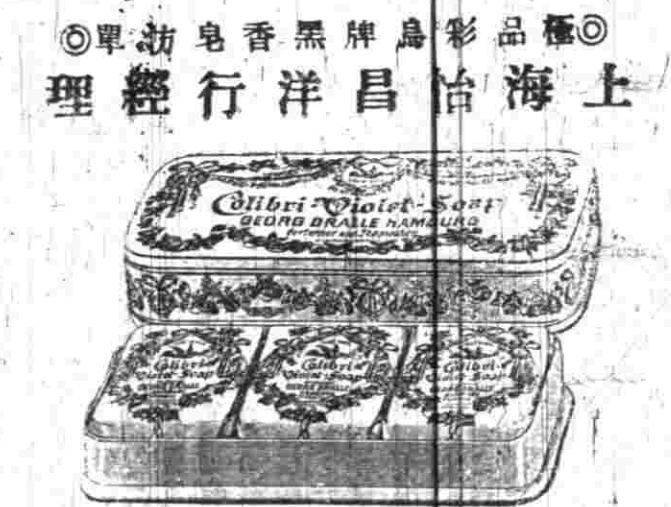 ◎極品彩鳥牌黑香皂訪單◎
上海怡昌洋行經理
Colibri-Violet-Soap
GEORG DRALLE HAMBURG
Colibri
Violet-Soap
GEORG DRALLE
Colibri
Violet-Soap
GEORG DRALLE
Colibri
Violet-Soap